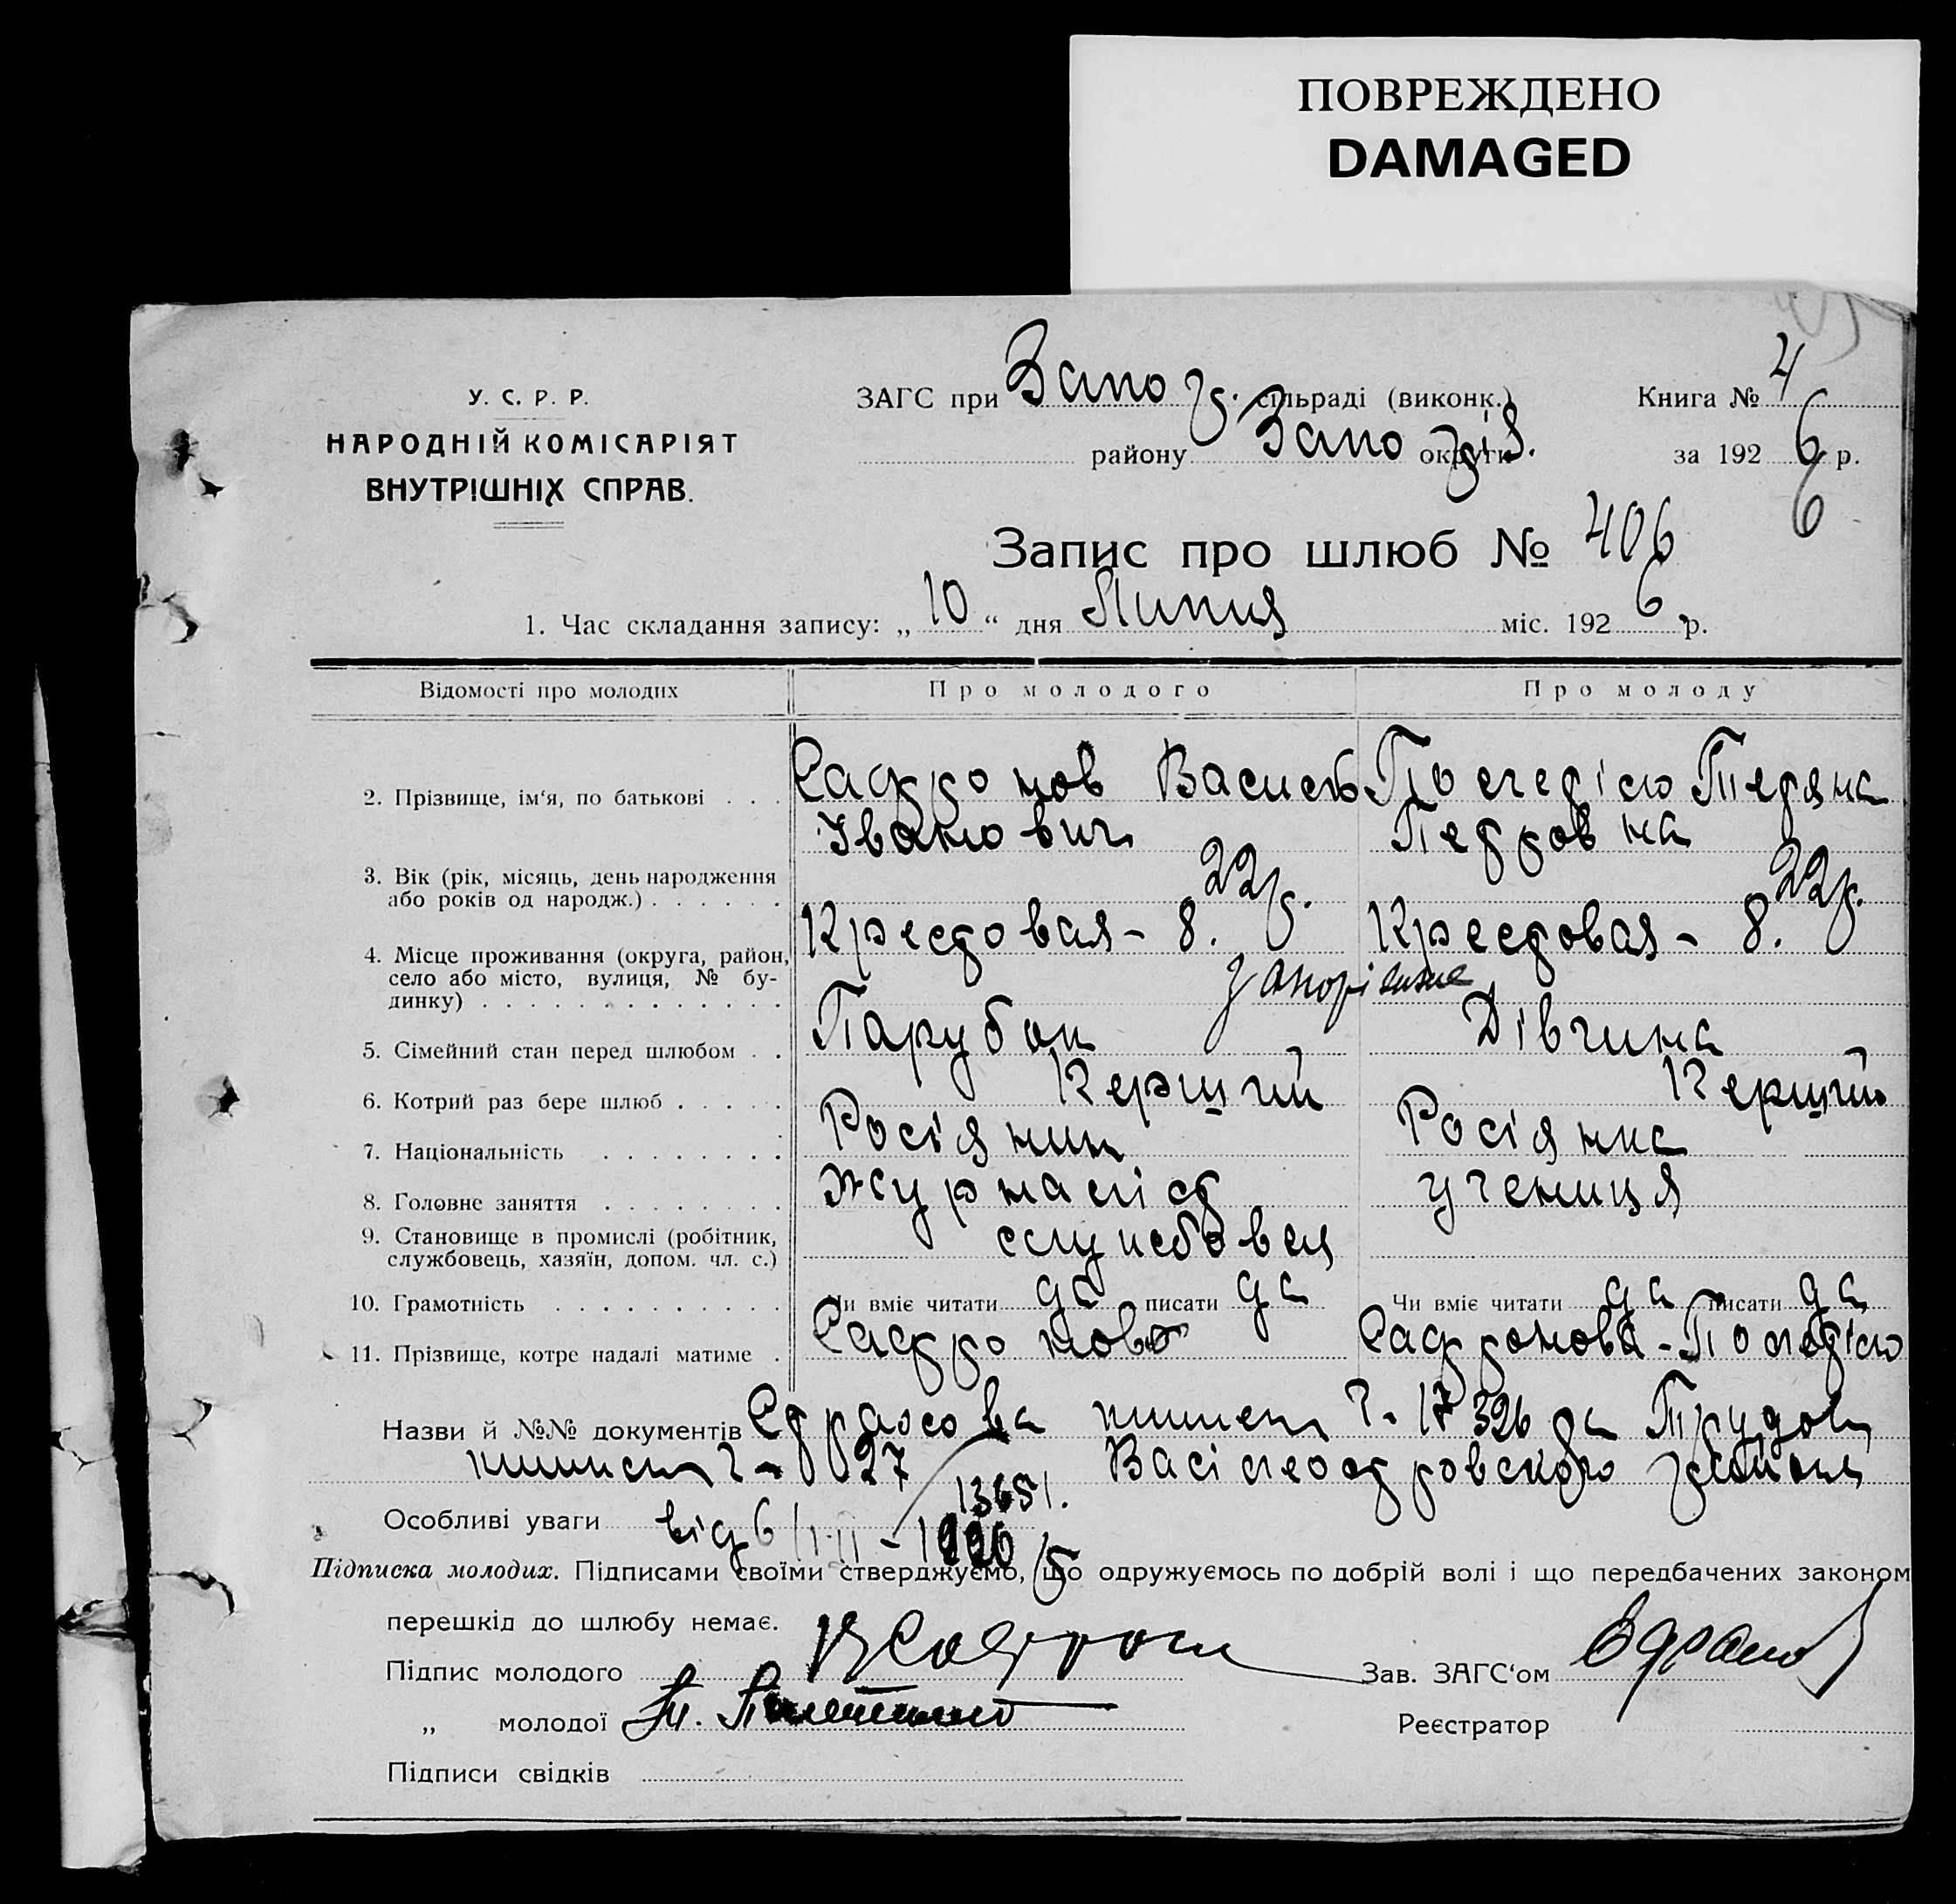 ПОВРЕЖДЕНО
DAMAGED
У. С. Р. Р.
НАРОДНІЙ КОМІСАРІЯТ
ВНУТРІШНІХ СПРАВ.
ЗАГС при Запо сільраді (виконк.)
району Запо округи
Книга № 4
за 1926 р.
6
Запис про шлюб № 406
1. Час складання запису: „10“ дня Липня міс. 1926 р.
Відомості про молодих Про молодого Про молоду
2. Прізвище, ім'я, по батькові . . . Сафронов Василь
Іванович
Тетяна
Петровна
3. Вік (рік, місяць, день народження
або років од народж.) . . . . . . 22р. 22р.
4. Місце проживання (округа, район,
село або місто, вулиця, № бу-
динку) . . . . . . . . . . . . . Крестовая - 8. Крестовая - 8.
Запоріжжє
5. Сімейний стан перед шлюбом . . Парубок Дівчина
6. Котрий раз бере шлюб . . . . . Перший Перший
7. Національність . . . . . . . . Росіянин Росіянка
8. Головне заняття . . . . . . . . Журналіст учениця
9. Становище в промислі (робітник,
службовець, хазяїн, допом. чл. с.) службовец
10. Грамотність . . . . . . . . . . Чи вміє читати да писати да Чи вміє читати да писати да
11. Прізвище, котре надалі матиме . Сафронов Сафронова-
Назви й №№ документів Страхова книжка 17326 да Трудов
книжка 27 района
13651.
Особливі уваги від 6 1926
Підписка молодих. Підписами своїми стверджуємо, що одружуємось по добрій волі і що передбачених законом
перешкід до шлюбу немає.
Підпис молодого
Зав. ЗАГС'ом
„ молодої
Реєстратор
Підписи свідків